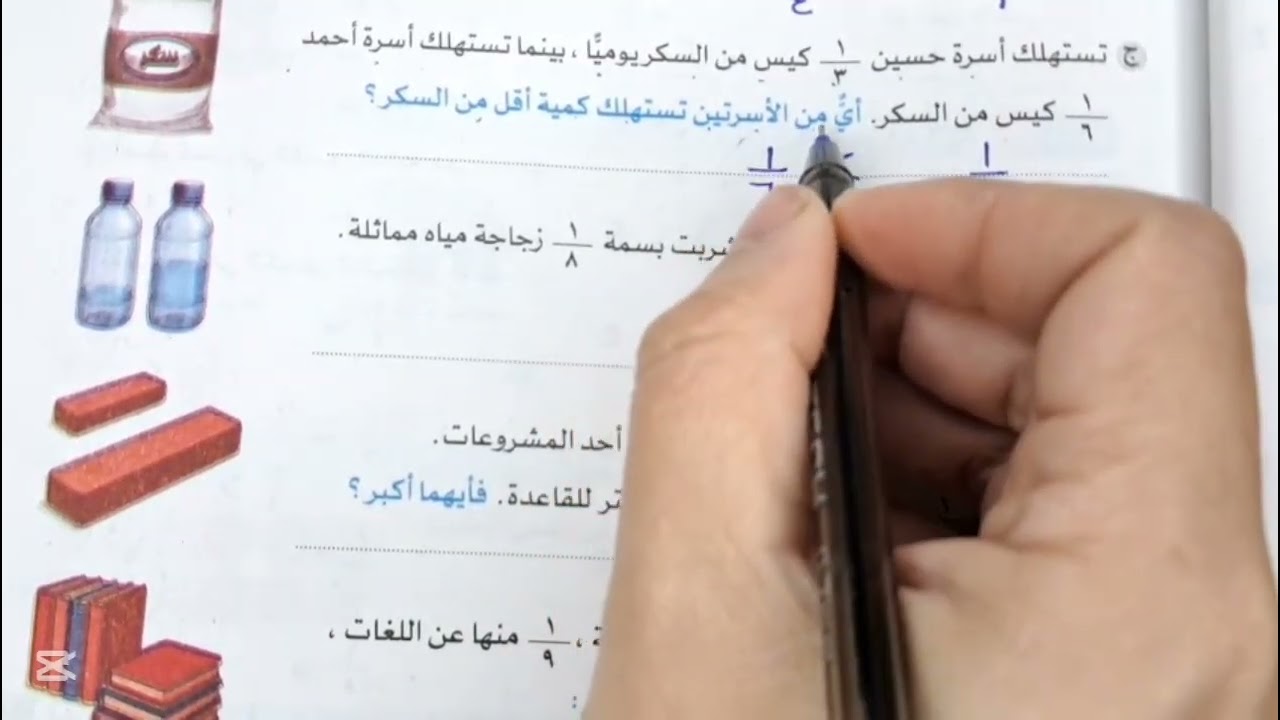 سكر
ج تستهلك أسرة حسين ١/٣ كيس من السكر يوميًّا ، بينما تستهلك أسرة أحمد
١/٦ كيس من السكر. أيٌّ من الأسرتين تستهلك كمية أقل من السكر؟
شربت بسمة ١/٨ زجاجة مياه مماثلة.
أحد المشروعات.
تر للقاعدة. فأيهما أكبر؟
١/٩ منها عن اللغات ،
: